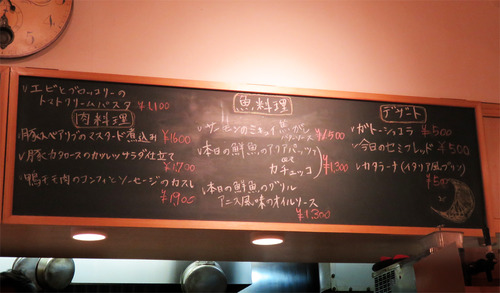 ・エビとブロッコリーの
トマトクリームパスタ ¥1,100
肉料理
・豚バラとアサリのマスタード煮込み ¥1600
・豚カタロースのカツレツサラダ仕立て
¥1,700
・鴨モモ肉のコンフィとソーセージのカスレ
¥1900
魚料理
・サーモンのミキュイ 焦がし
バターソース ¥1500
・本日の鮮魚のアクアパッツァ
or
カチュッコ
¥1,300
・本日の鮮魚のグリル
アニス風味のオイルソース
¥1,300
デザート
・ガトーショコラ ¥500
・今日のセミフレッド ¥500
・カタラーナ(イタリア風プリン)
¥500